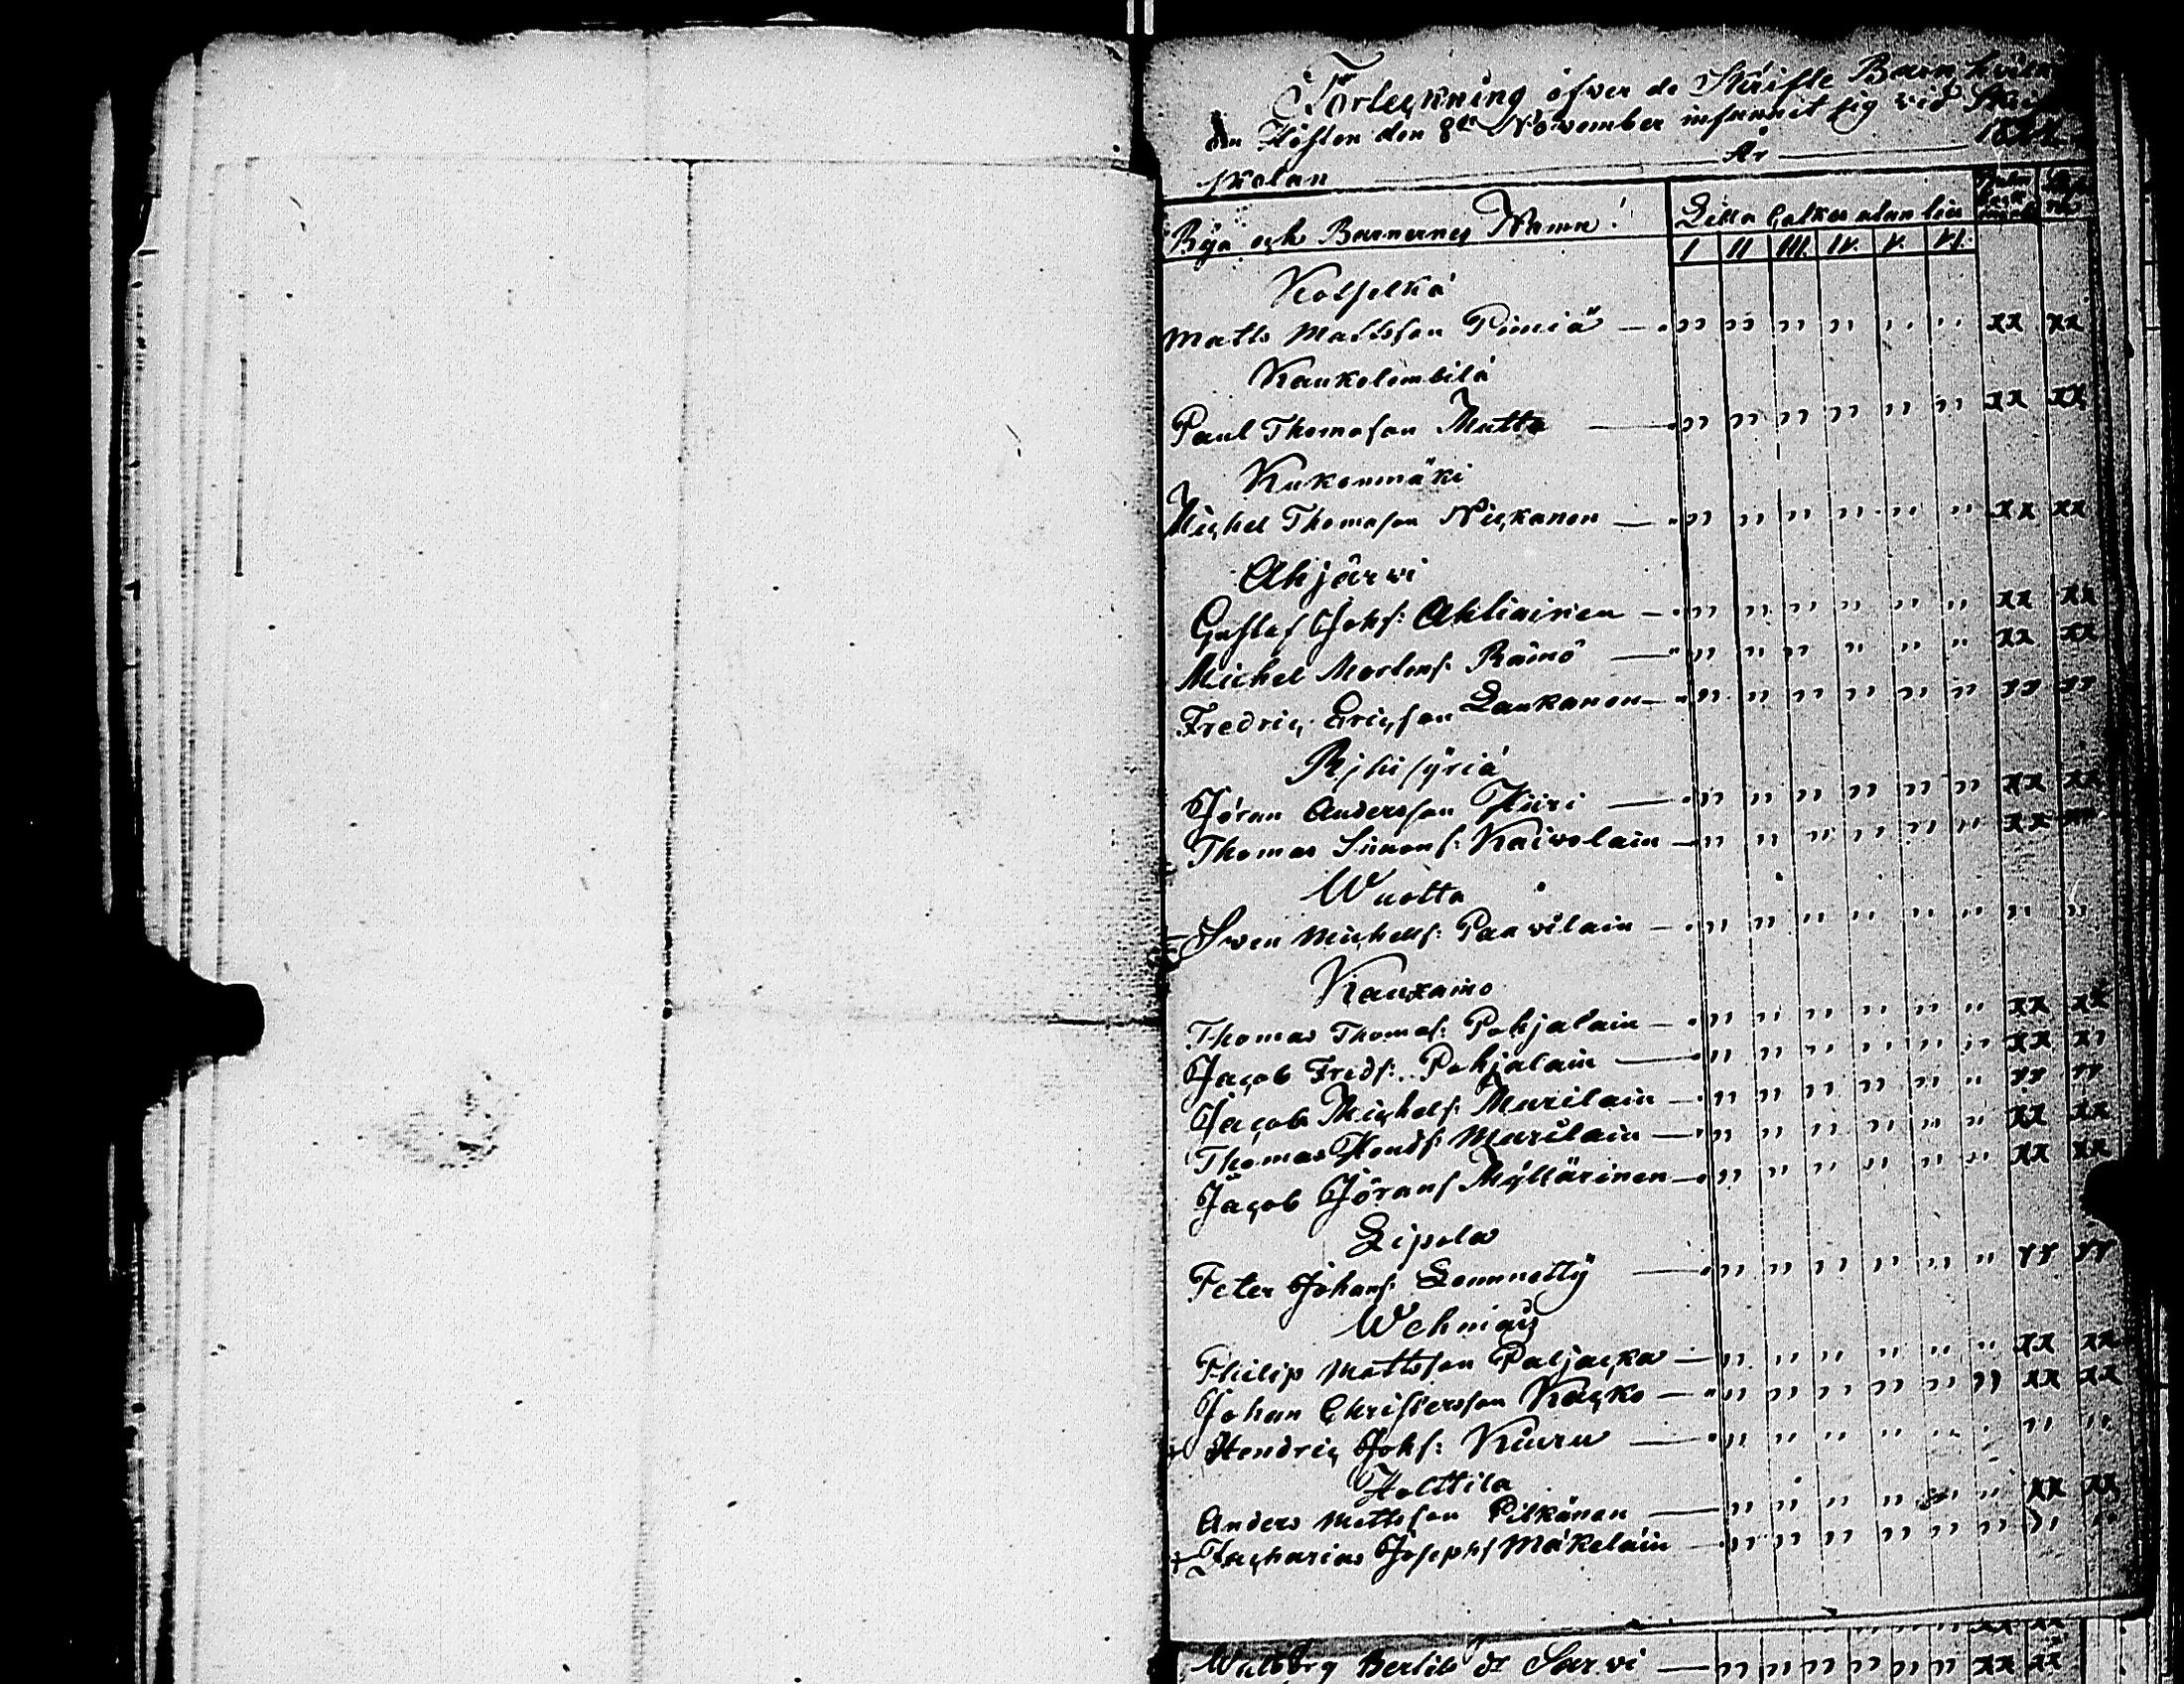 Förteckning öfver de Skrifte Barn hvilka
om Hösten den 8de November infunnit sig vid Skrift
skolan År 1822
Bya och Barnernes Namn! Lilla Catkes utan lus
I II III. IV. V. VI.
Kolselkä
Matts Mattsson Pimiä — " " " " " " xx xx
Kaukolembilä
Paul Thomasson Mutto — " " " " " " xx xx
Kukonmäki
Michel Thomasson Nickanen — " " " " " " xx xx
Ahjärvi
Gustaf Johs: Ahliainen — " " " " " " xx xx
Michel Mortens: Rämö — " " " " " " xx xx
Fredric Ericsson Laukanen — " " " " " " xx xx
Rjhisyriä
Jöran Andersson Hiiri — " " " " " " xx xx
Thomas Simons: Kaivolain — " " " " " " xx xx
Wuotta
Sven Michels: Paavilain — " " " " " " " "
Kauxamo
Thomas Thomas: Pohjalain — " " " " " " xx xx
Jacob Freds: Pohjalain — " " " " " " xx xx
Jacob Michels: Murilain — " " " " " " xx xx
Thomas Hends: Murilain — " " " " " " xx xx
Jacob Jörans Myllärinen — " " " " " " xx xx
Lipola
Peter Johans: Lemmetty — " " " " " " xx xx
Wehmais
Philip Mattsson Paljacka — " " " " " " xx xx
Johan Christersson Kacko — " " " " " " xx xx
Hendric Johs: Kiuru — " " " " " " " "
Holttila
Anders Mattsson Pilkänen — " " " " " " xx xx
Zacharias Josephs Mäkeläin — " " " " " " " "
Walborg Bertils dr Sarvi — " " " " " " xx xx